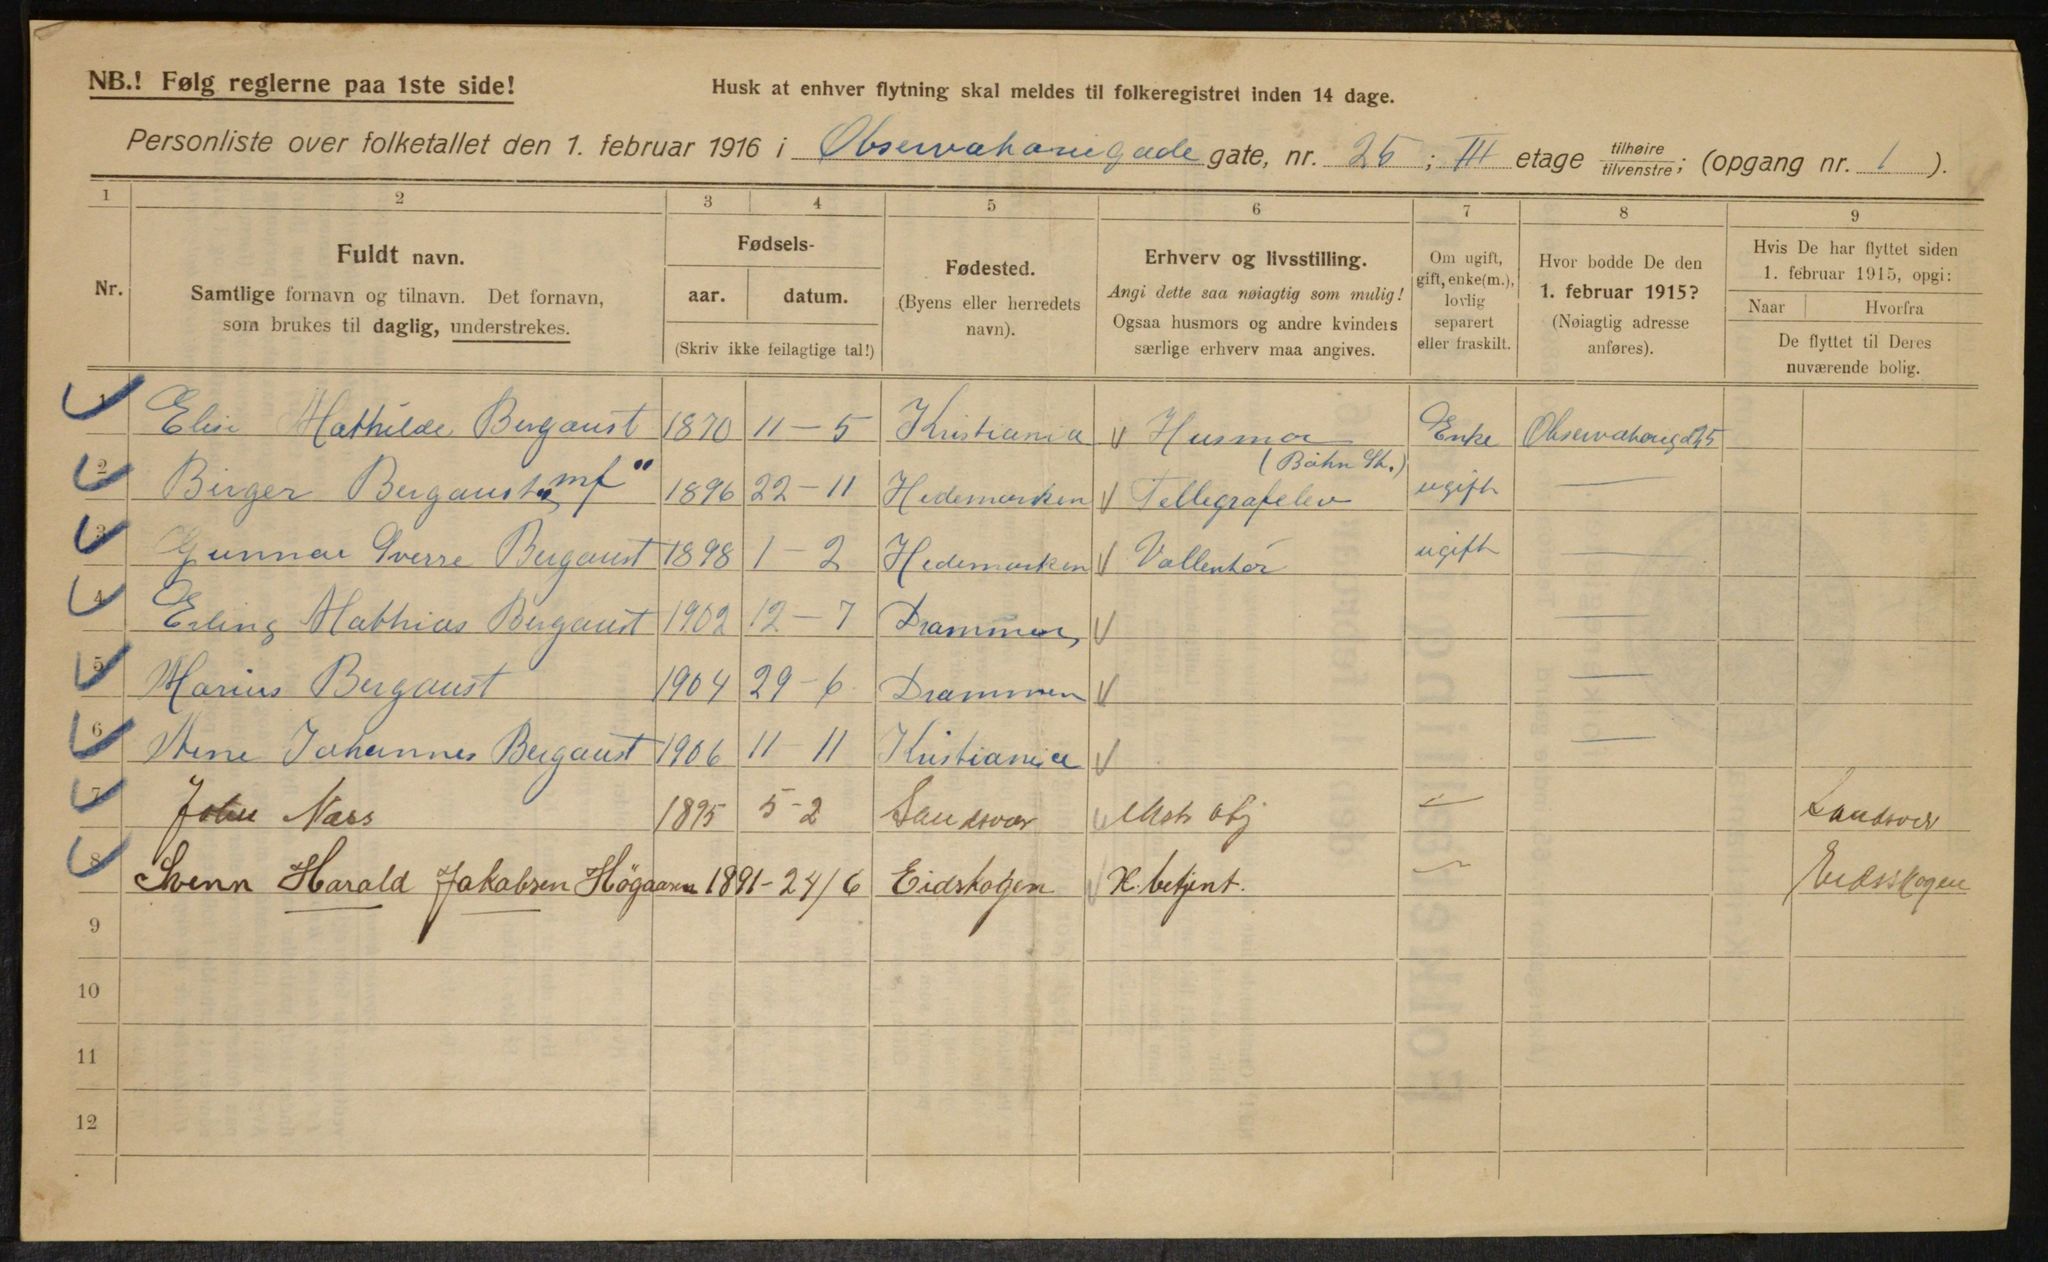 NB.! Følg reglerne paa 1ste side!
Husk at enhver flytning skal meldes til folkeregistret inden 14 dage.
Personliste over folketallet den 1. februar 1916 i Observatoriegade gate, nr. 25; III etage tilhøire/tilvenstre; (opgang nr. 1).
1 2 3 4 5 6 7 8 9
Nr.
Fuldt navn.
Samtlige fornavn og tilnavn. Det fornavn,
som brukes til daglig, understrekes.
Fødsels-
aar. datum.
(Skriv ikke feilagtige tal!)
Fødested.
(Byens eller herredets
navn).
Erhverv og livsstilling.
Angi dette saa nøiagtig som mulig!
Ogsaa husmors og andre kvinders
særlige erhverv maa angives.
Om ugift,
gift, enke(m.),
lovlig
separert
eller fraskilt.
Hvor bodde De den
1. februar 1915?
(Nøiagtig adresse
anføres).
Hvis De har flyttet siden
1. februar 1915, opgi:
Naar Hvorfra
De flyttet til Deres
nuværende bolig.
1 Elise Mathilde Bergaust 1870 11-5 Kristiania Husmor Enke Observatoriegd 25
(Bøhn Sk.)
2 Birger Bergaust „mf" 1896 22-11 Hedemarken Tellegrafelev ugift —
3 Gunnar Sverre Bergaust 1898 1-2 Hedemarken Vollentør ugift —
4 Erling Mathias Bergaust 1902 12-7 Drammen —
5 Marius Bergaust 1904 29-6 Drammen —
6 Arne Johannes Bergaust 1906 11-11 Kristiania —
7 John Næss 1895 5-2 Sandsvær — Sandsvær
8 Svenn Harald Jakobsen Högaasen 1891-24/6 Eidskogen K. betjent. — Eidsskogen
9
10
11
12